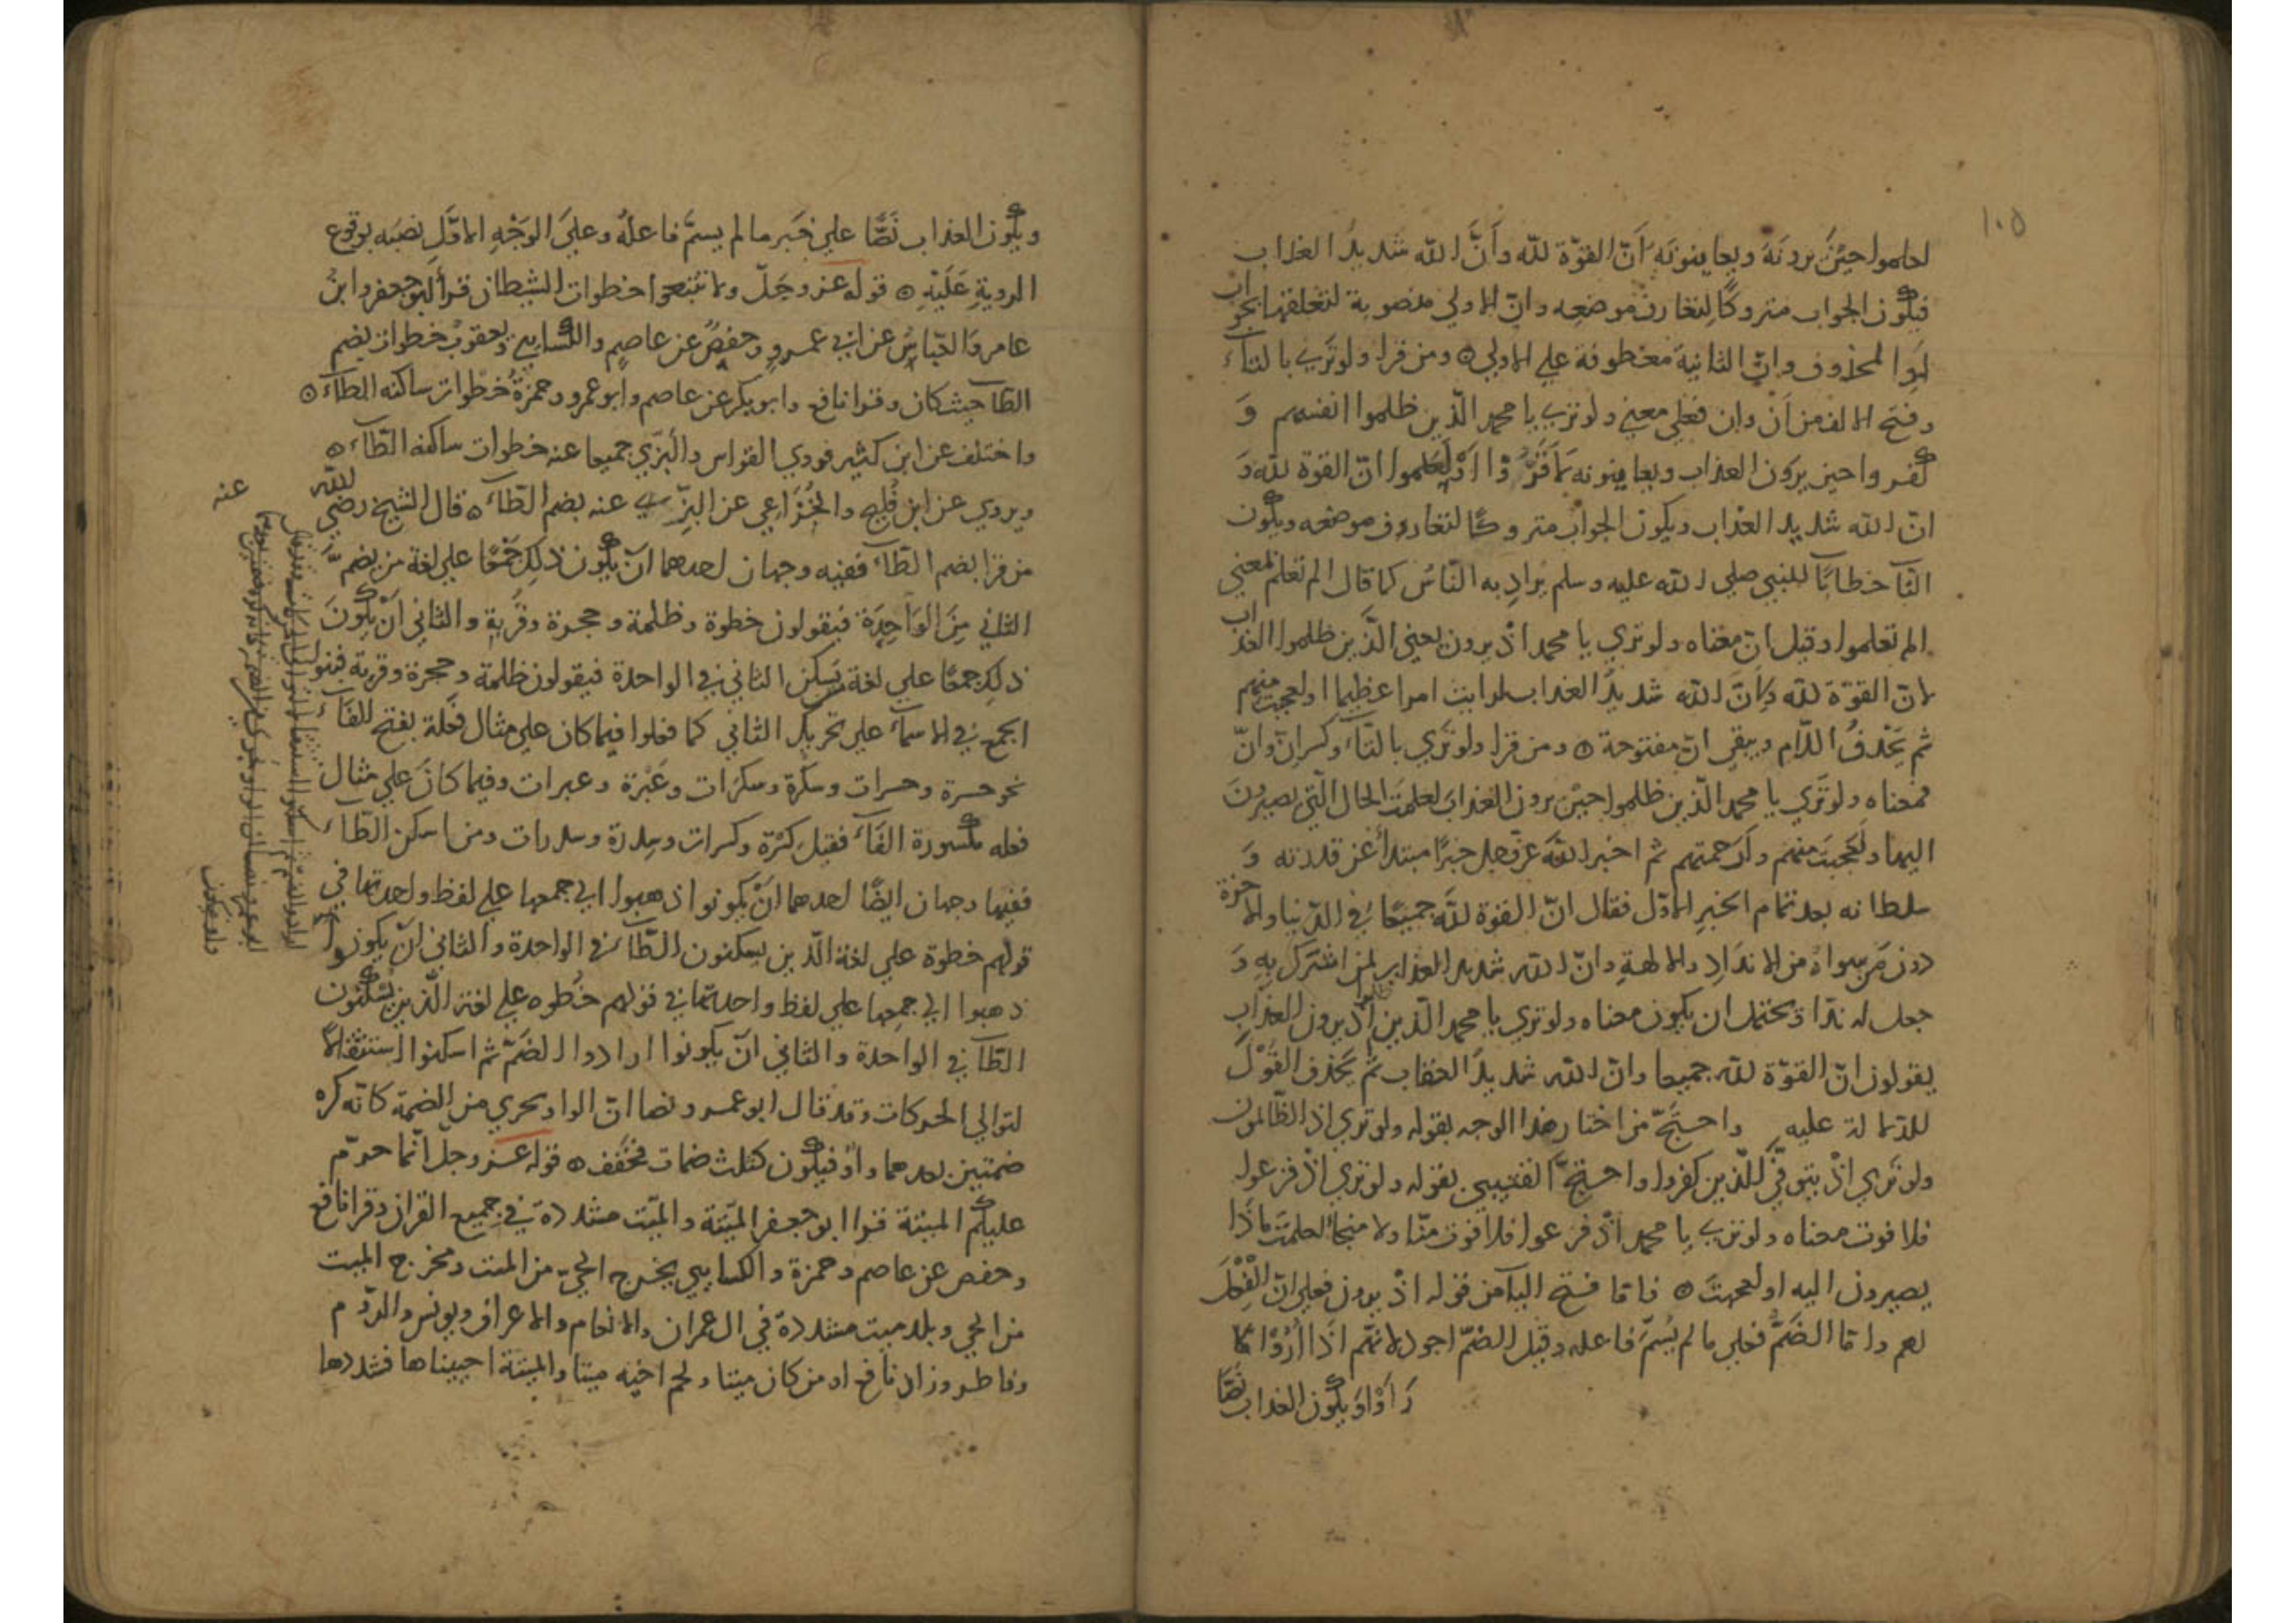 ١٠٥
لعلموا حين يرونه ويعاينونه أنّ القوّة لله وأنّ الله شديد العذاب
فيكون الجواب متروكا لتعارف موضعه وانّ الاولي منصوبة لتعلقها بجواب
لو المحذوف وانّ الثانية معطوفة علي الاولي ه ومن قرا ولو تري بالتاء
وفتح الالف من أن وان فعلي معني ولو تري يا محمد الّذين ظلموا انفسهم و
كفروا حين يرون العذاب ويعاينونه انّ القوة لله و
انّ الله شديد العذاب ويكون الجواب متروكا لتعارف موضعه ويكون
التا خطابا للنبي صلي الله عليه وسلم يراد به النّاس كما قال الم تعلم بمعني
الم تعلموا وقيل انّ معناه ولو تري يا محمد اذ يرون يعني الّذين ظلموا العذاب
لانّ القوّة لله ولانّ الله شديد العذاب لرايت امرا عظيما او لعجبت منهم
ثم يحذف اللام ويبقي انّ مفتوحة ه ومن قرا ولو تري بالتاء وكسر انّ وانّ
فمعناه ولو تري يا محمد الّذين ظلموا حين يرون العذاب لعلمت الحال الّتي يصيرون
اليها ولعجبت منهم ولرحمتهم ثم اخبر الله عزّ وجل خبرا مبتدأ عن قدرته و
سلطانه بعد تمام الخبر الاوّل فقال انّ القوة لله جميعا في الدّنيا والاخرة
دون من سواه من الانداد والالهة وانّ الله شديد العذاب لمن اشرك به و
جعل له ندّا ويحتمل ان يكون معناه ولو تري يا محمد الّذين ظلموا اذ يرون العذاب
يقولون انّ القوّة لله جميعا وانّ الله شديد العقاب ثم يحذف القول
للدّلالة عليه واحتجّ من اختار هذا الوجه بقوله ولو تري اذ الظّالمون
ولو تري اذ يتوفّي الّذين كفروا واحتجّ القتيبي بقوله ولو تري اذ فزعوا
فلا فوت معناه ولو تري يا محمد اذ فزعوا فلا فوت منّا ولا منجا لعلمت ماذا
يصيرون اليه او لعجبت ه فامّا فتح اليا من قوله اذ يرون فعلي انّ الفعل
لهم وامّا الضمّ فعلي ما لم يسمّ فاعله وقيل الضمّ اجود لانّهم اذا أُرُوْا
رَأَوْا ويكون العذاب نصبا
ويكون العذاب نصبا علي خبر ما لم يسمّ فاعله وعلي الوجه الاوّل نصبه بوقوع
الروية عليه ه قوله عز وجلّ ولا تتبعوا خطوات الشيطان قرأ ابو جعفر وابن
عامر والعبّاس عن ابي عمرو وحفص عن عاصم والكسايي ويعقوب خطوات بضم
الطّا حيث كان وقرا نافع وابو بكر عن عاصم وابو عمرو وحمزة خطوات ساكنه الطّاء ه
واختلف عن ابن كثير فروي القواس والبزّي جميعا عنه خطوات ساكنه الطّاء ه
ويروي عن ابن فليح والخزاعي عن البزّي عنه بضم الطّاء ه قال الشيخ رضي الله عنه
من قرا بضم الطّاء ففيه وجهان احدهما انّ يكون ذلك جمعا علي لغة من يضمّ
الثاني من الواحدة فيقولون خطوة وظلمة وحجرة وقربة والثاني ان يكون
ذلك جمعا علي لغة يسكن الثاني في الواحدة فيقولون ظلمة وحجرة وقربة فبنوا
الجمع في الاسماء علي تحريك الثاني كما فعلوا فيما كان علي مثال فعلة بفتح الفاء
نحو حسرة وحسرات وسكرة وسكرات وعبرة وعبرات وفيما كان علي مثال
فعله مكسورة الفاء فقيل كسرة وكسرات وسدرة وسدرات ومن اسكن الطّاء
ففيها وجهان ايضا احدهما ان يكونوا ذهبوا الي جمعها علي لفظ واحدتها في
قولهم خطوة علي لغة الّذين يسكنون الطّا في الواحدة والثاني ان يكونوا
ذهبوا الي جمعها علي لفظ واحدتها في قولهم خطوه علي لغة الّذين يسكنون
الطّا في الواحدة والثاني ان يكونوا ارادوا الضمّ ثم اسكنوا استثقالا
لتوالي الحركات وقد قال ابو عمرو نصا انّ الواو تجري من الضمة كانّه كره
ضمتين بعدهما واو فيكون كثلث ضمات فخفف ه قوله عز وجل انّما حرّم
عليكم الميتة قرا ابو جعفر الميّتة والميّت مشددة في جميع القران وقرا نافع
وحفص عن عاصم وحمزة والكسايي يخرج الحيّ من الميت ومخرج الميت
من الحي وبلد ميت مشددة في ال عمران والانعام والاعراف ويونس والرّوم
وفاطر وزاد نافع او من كان ميتا ولحم اخيه ميتا والميتة احييناها فشددها